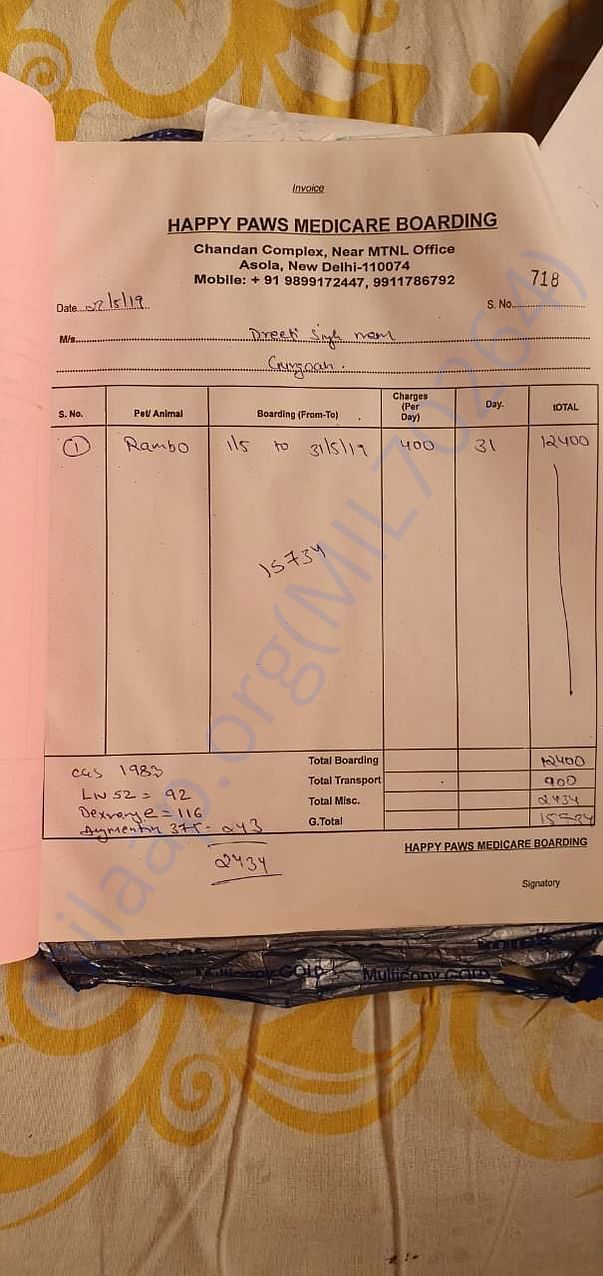 Invoice
HAPPY PAWS MEDICARE BOARDING
Chandan Complex, Near MTNL Office
Asola, New Delhi-110074
Mobile: + 91 9899172447, 9911786792
718
Date. 02/5/19 S. No.
M/s. Preeti Singh mam
Gurgoan.
S. No. Pet/ Animal Boarding (From-To) Charges (Per Day) Day. tOTAL
1 Rambo 1/5 to 31/5/19 400 31 12400
15734
Total Boarding 12400
Total Transport 900
Total Misc. 2434
G.Total 15734
1983
Liv 52 = 92
= 116
Augmentin 375 - 243
2434
HAPPY PAWS MEDICARE BOARDING
Signatory
Multicopy GOLD Multicopy GOLD
milaap.org(MIL70264)